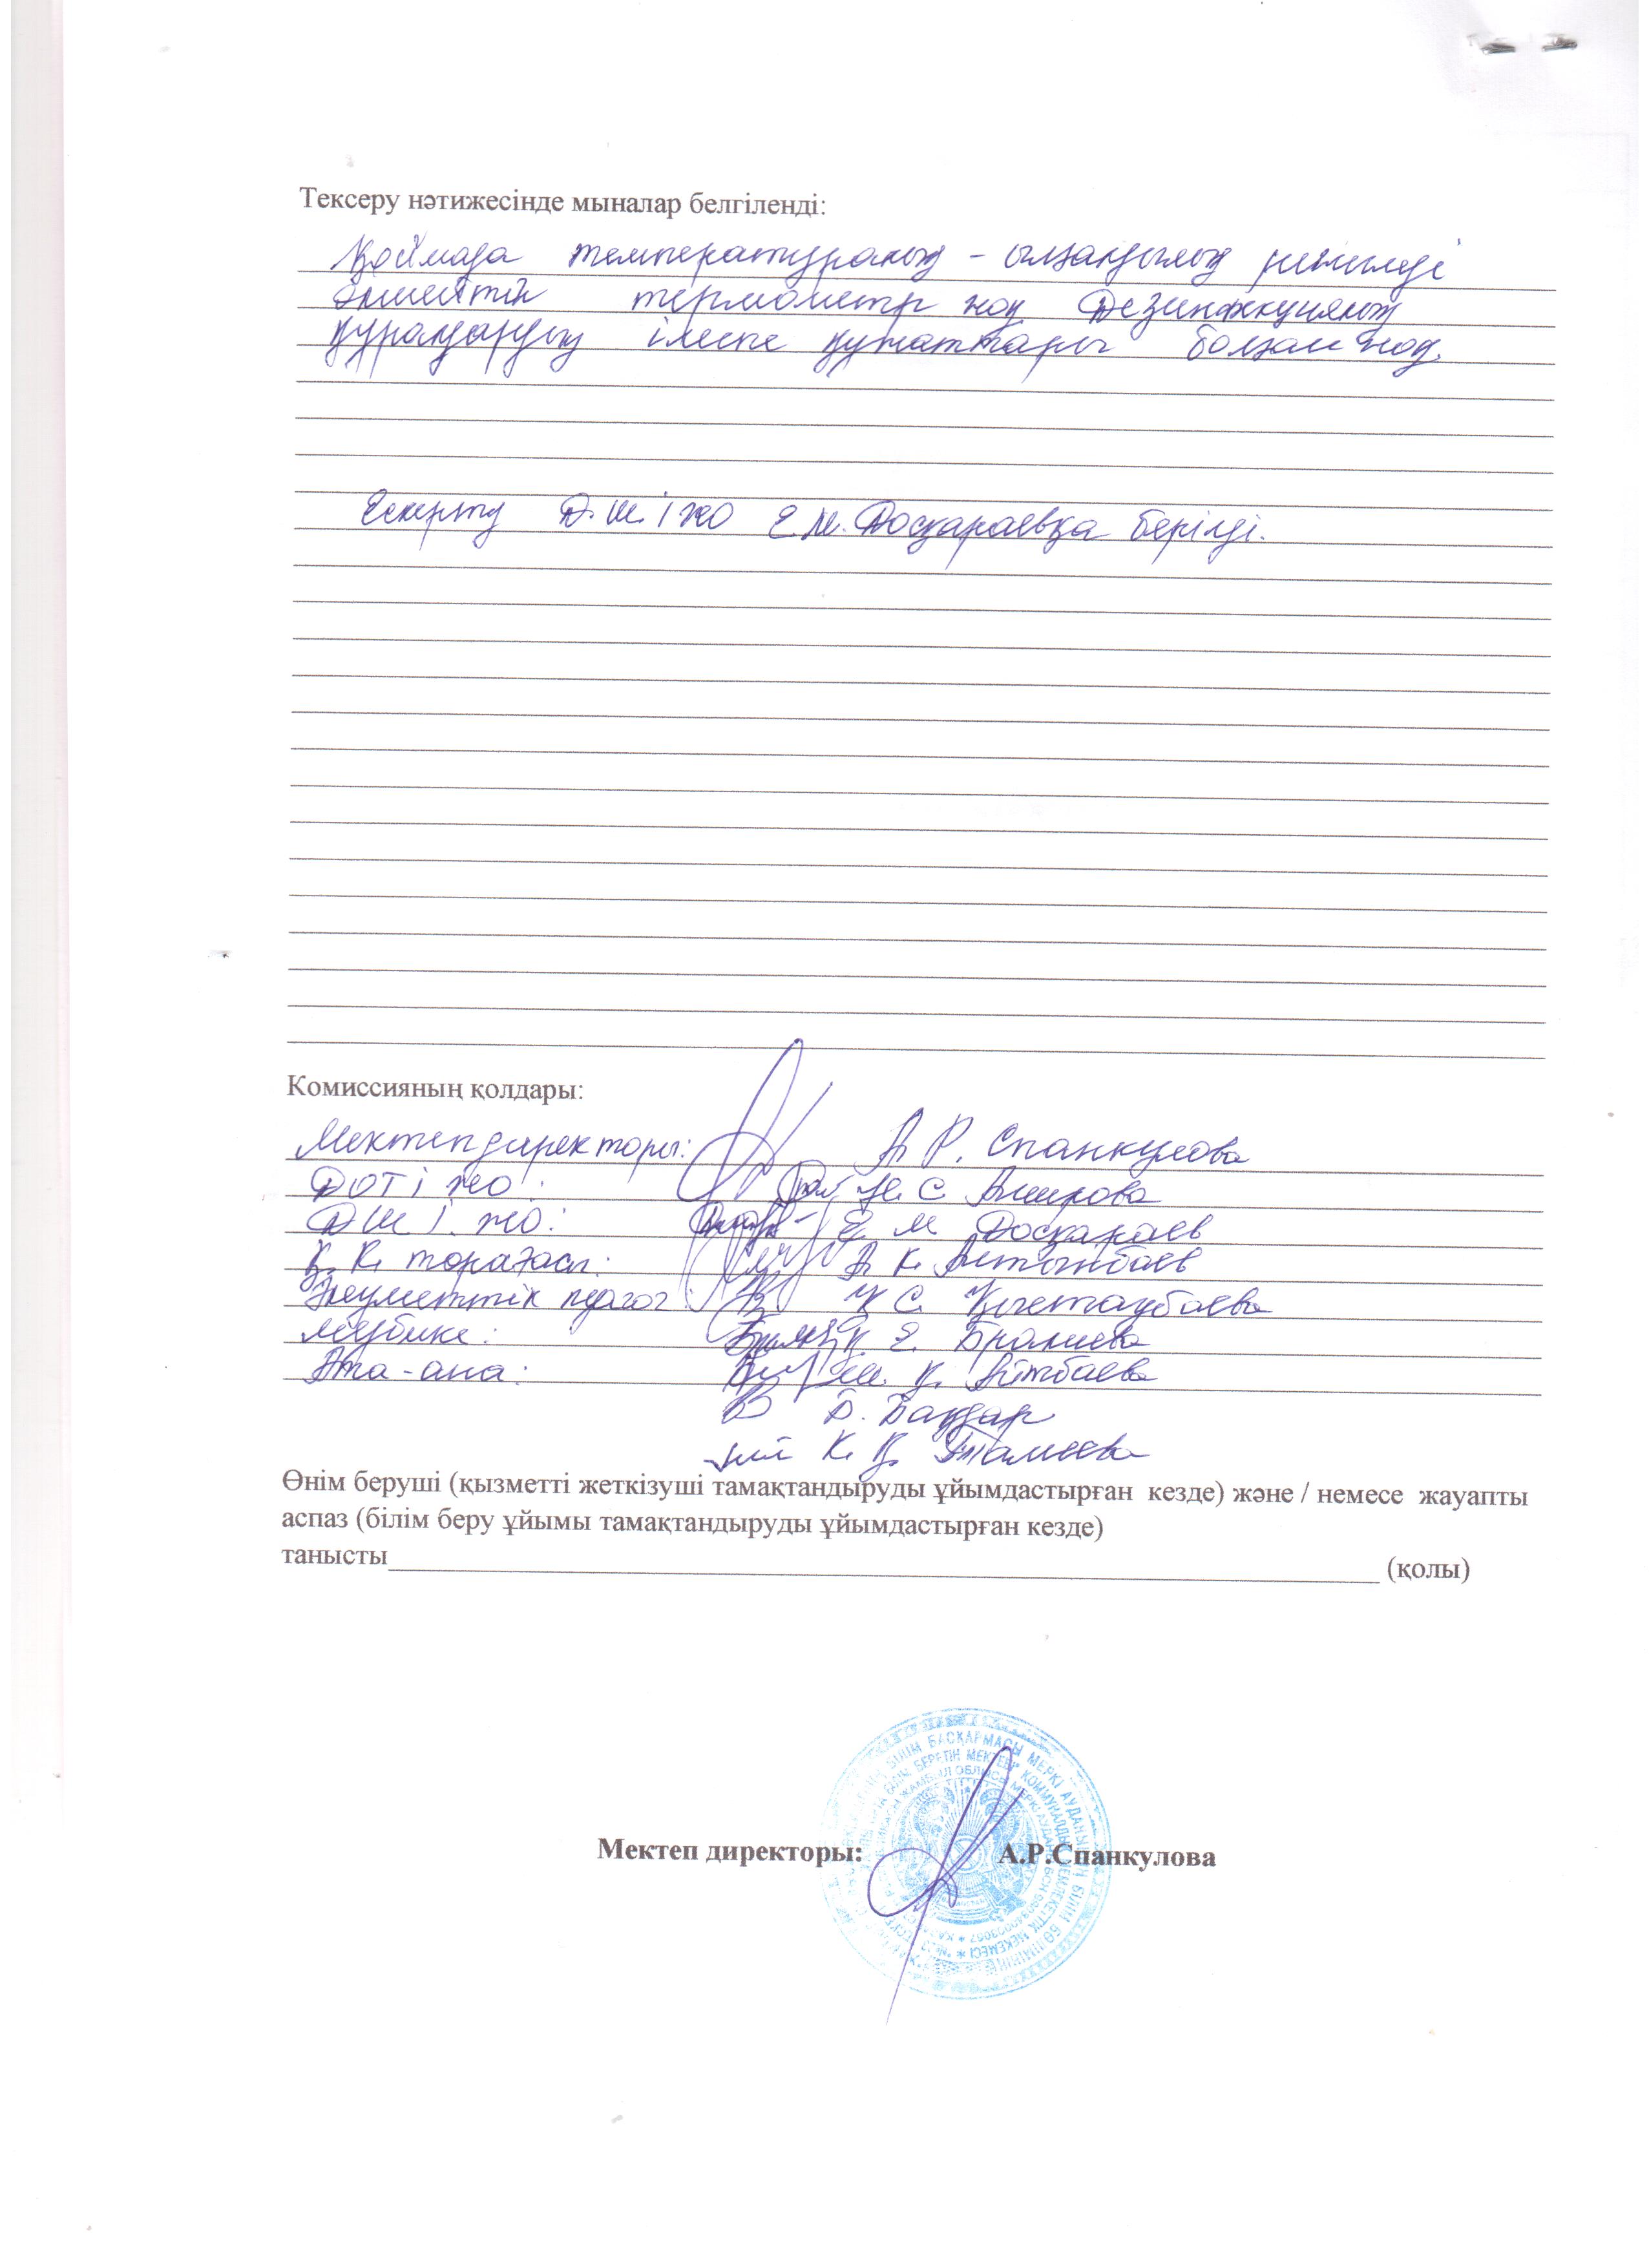 Тексеру нәтижесінде мыналар белгіленді:
Қоймада температуралық - ылғалдылық режимді
өлшейтін термометр жоқ. Дезинфекциялық
құралдардың ілеспе құжаттары болған жоқ.
Ескерту Д.Ш.І ЖО Е.М.Досқараевқа берілді.
Комиссияның қолдары:
Мектеп директоры: А Р. Спанкулова
ДОТІ ЖО: С Аширова
ДШ І. ЖО: Е М Досқараев
Қ. К. төрағасы: А К. Алтынбаев
Әлеуметтік педагог: С.
Мейбике: Е. Бралиева
Ата-ана: Ш. К. Айтбаева
Б. Бақдәр
К. Қ.
Өнім беруші (қызметті жеткізуші тамақтандыруды ұйымдастырған кезде) және / немесе жауапты
аспаз (білім беру ұйымы тамақтандыруды ұйымдастырған кезде)
танысты (қолы)
БІЛІМ БАСҚАРМАСЫ МЕРКІ АУДАНЫНЫҢ БІЛІМ
БЕРЕТІН МЕКТЕБІ КОММУНАЛДЫҚ МЕМЛЕКЕТТІК МЕКЕМЕСІ
Мектеп директоры: А.Р.Спанкулова